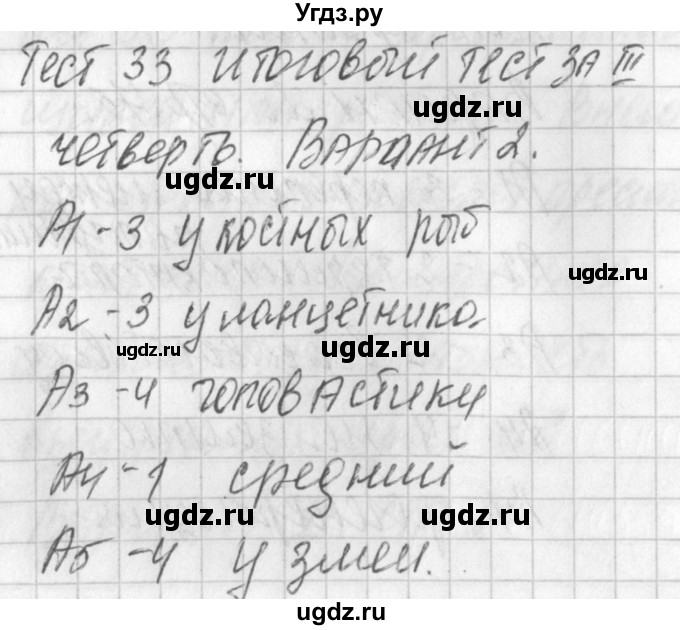 Угдз.ру
Тест 33 Итоговый тест за III
ugdz.ru
четверть. Вариант 2.
ugdz.ru
А1 - 3 у костных рыб
ugdz.ru
А2 - 3 у ланцетника.
ugdz.ru ugdz.ru
А3 - 4 головастики
ugdz.ru
А4 - 1 средний
ugdz.ru ugdz.ru
А5 - 4 у змеи.
ugdz.ru